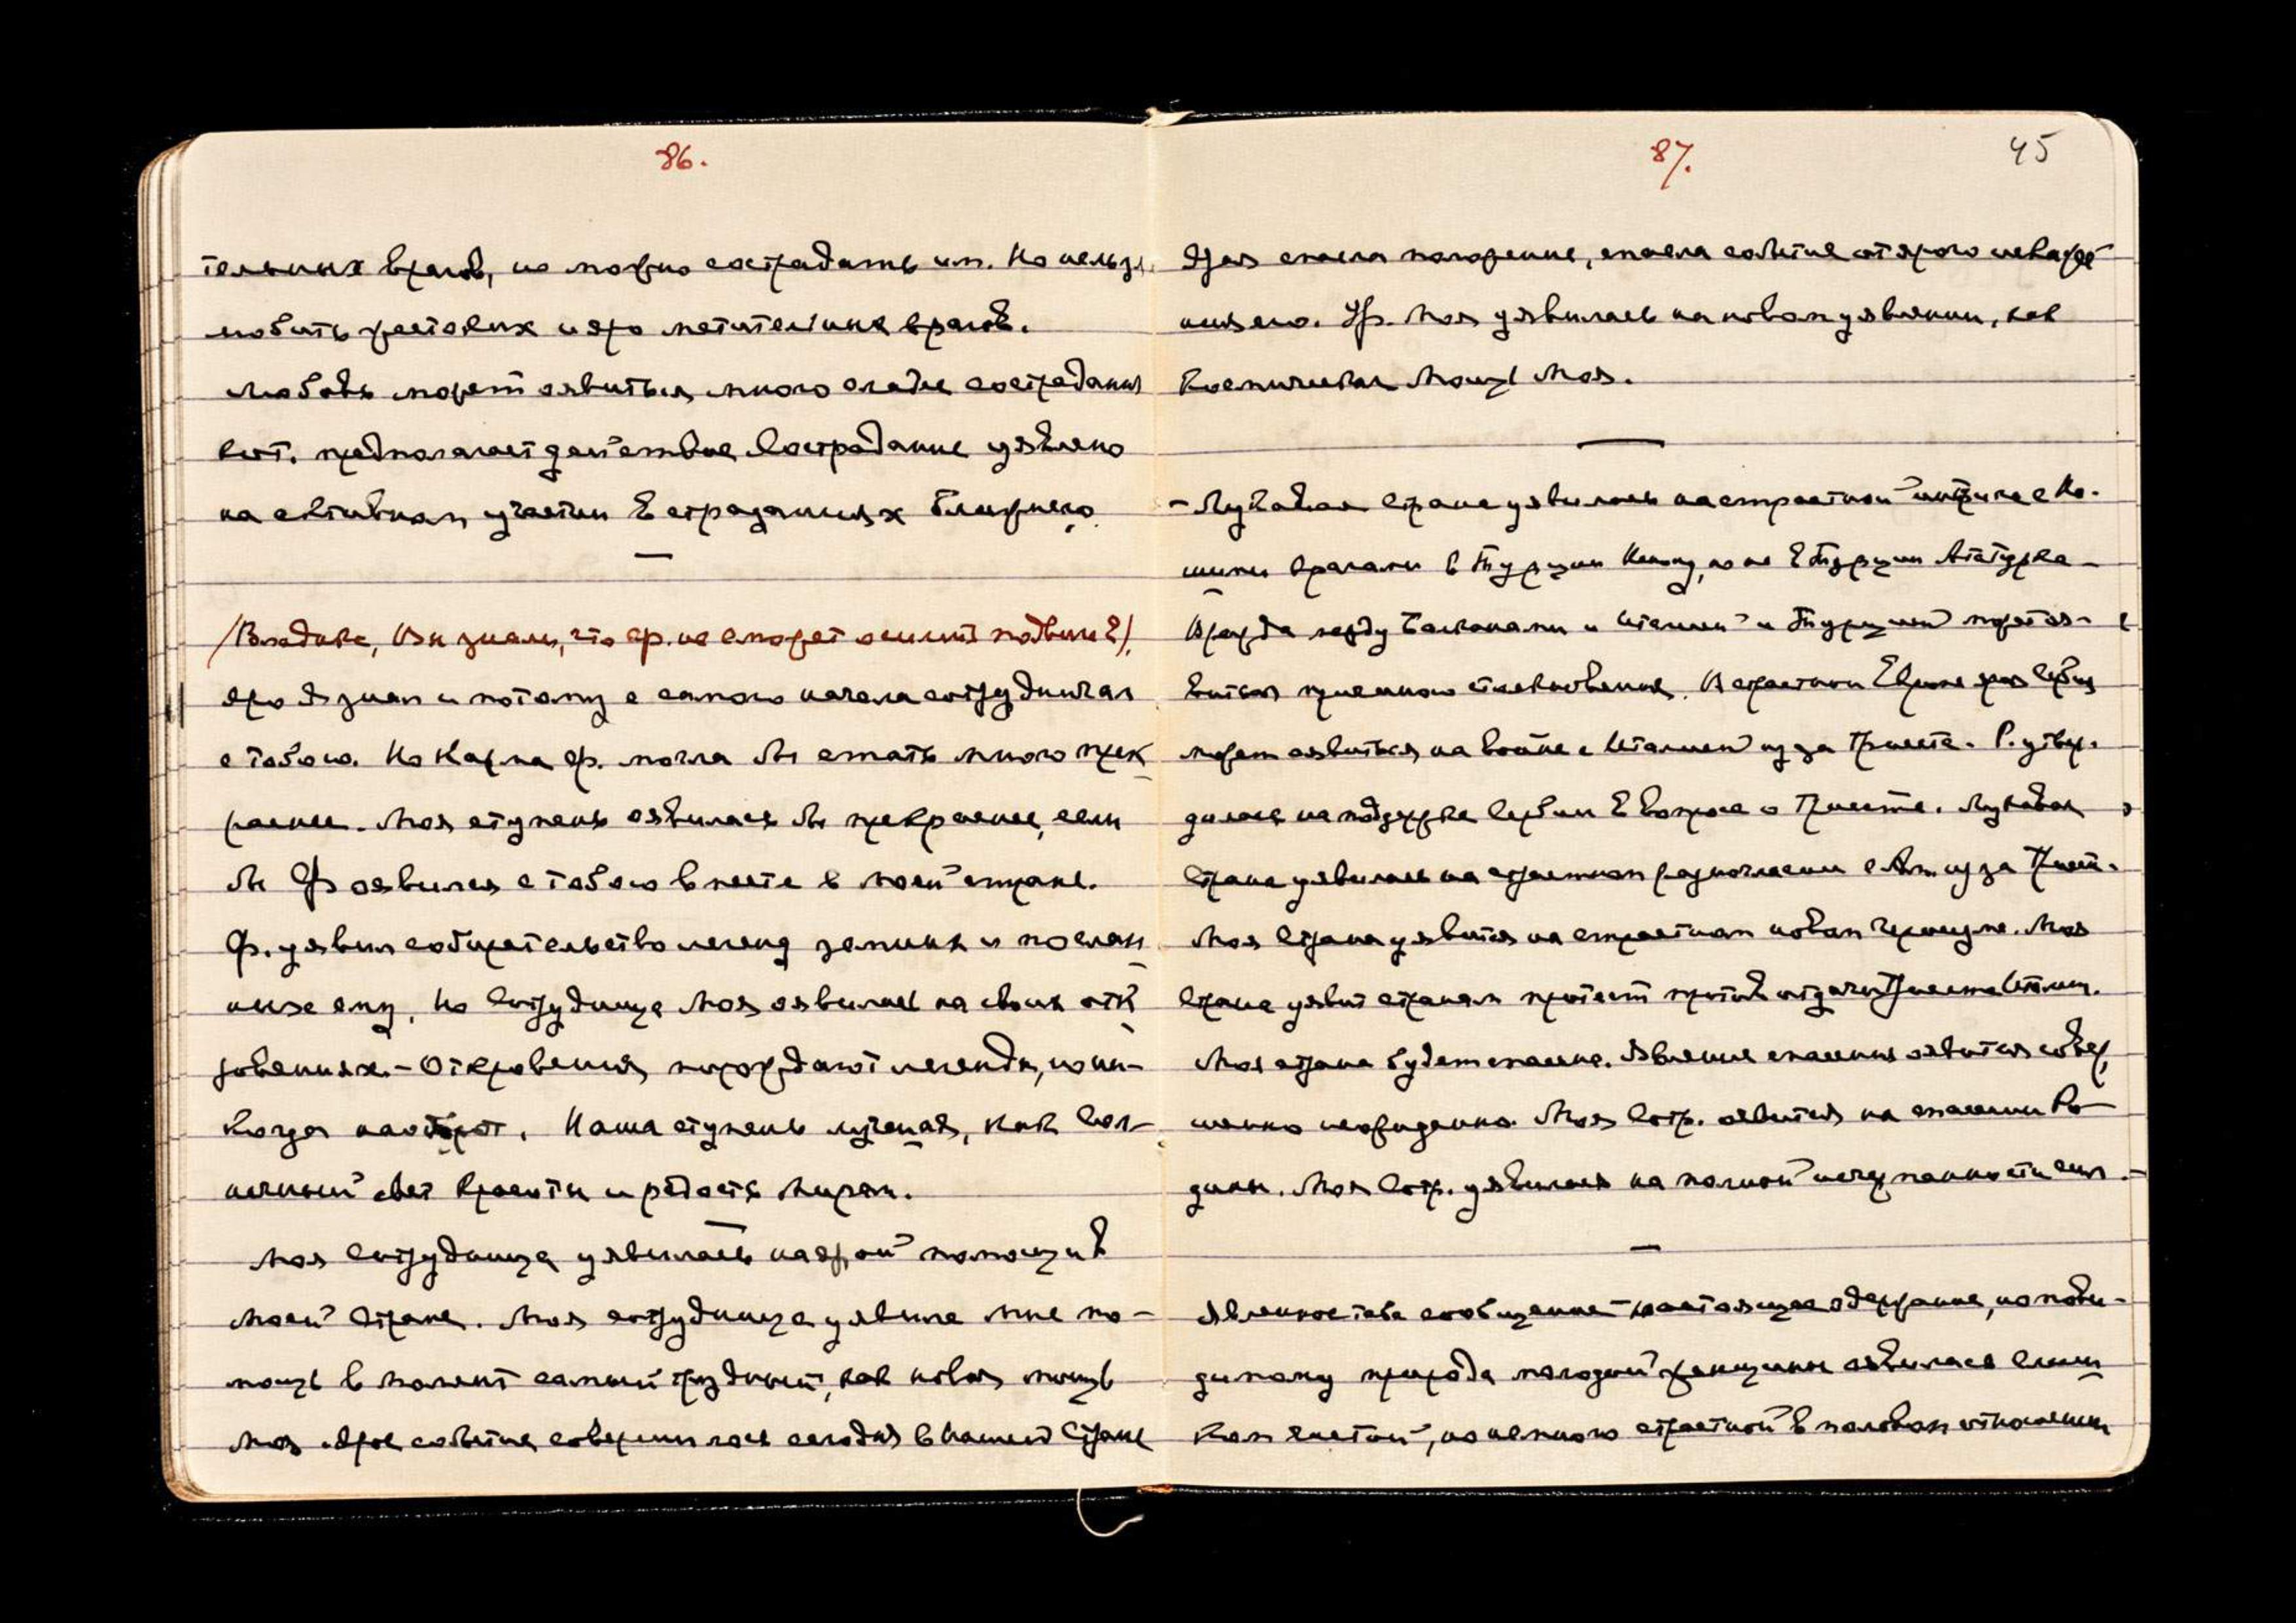 86.
тельных врагов, но можно сострадать им. Но нельзя
любить жестоких и яро мстительных врагов.
Любовь может явиться много слаще сострадания
сост. предполагает действие. Сострадание уявлено
на активном участии в страданиях ближнего.
/Владыка, Вы знали, что ф. не сможет осилить подвиг?/
Яро Я знал и потому с самого начала сотрудничал
с тобою. Но Карма ф. могла бы стать много прек
раснее. Моя ступень явилась бы прекраснее, если
бы Ф. оявился с тобою вместе в моей стране.
Ф. уявил собирательство легенд земных и послан
ных ему, но Сотрудница Моя оявилась на своих отк
ровениях. – Откровения порождают легенды, но ни-
когда наоборот. Наша ступень лучшая, как Сол-
нечный свет Красоты и радость Мирам.
Моя Сотрудница уявилась на ярой помощи
Моей Стране. Моя сотрудница уявила Мне по-
мощь в момент самый трудный, как новая мощь
Моя. Ярое событие совершилось сегодня в Нашей Стране
87.
45
Урая спасла положение, спасла события от ярого
Ур. Моя уявилась на новом уявлении, как
Космическая Мощь Моя.
– Лукавая Страна уявилась на страстной интриге с На-
шими врагами в Турции Кемаль, но не в Турции Ататурка –
Вражда между Балканами и Италией и Турцией может оя-
виться причиною столкновения. В страстной Европе ярая Сербия
может оявиться на войне с Италией из за Триеста. Р. утвер-
дилась на поддержке Сербии в вопросе о Триесте. Лукавая
Страна уявилась на страстном разногласии с Ам. из за Триест.
Моя Страна уявится на страстном новом Моя
Страна уявит странам протест против отдачи Триеста Италии.
Моя страна будет спасена. Явление спасения оявится совер
шенно неожиданно. Моя Сотр. оявится на спасении Ро-
дины. Моя Сотр. уявилась на полной исчерпанности сил. –
Явленное тебе сообщение – настоящее одержание, но пови-
димому природа молодой женщины оявилась слиш
ком чистой, но немного страстной в половом отношении